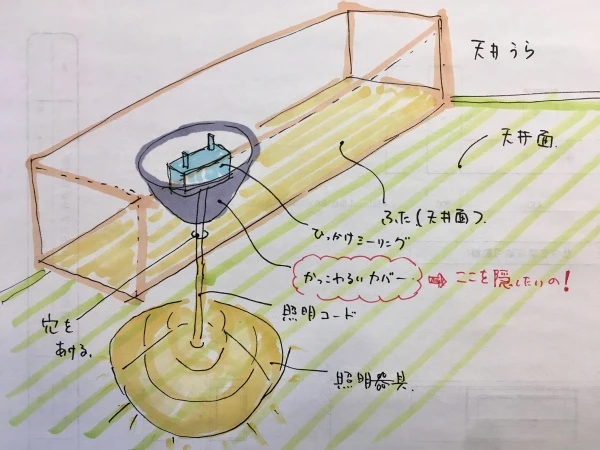 天井うら
天井面.
ふた(天井面).
ひっかけシーリング
かっこわるいカバー
⇒ ここを隠したいの!
照明コード
穴を
あける.
照明器具.